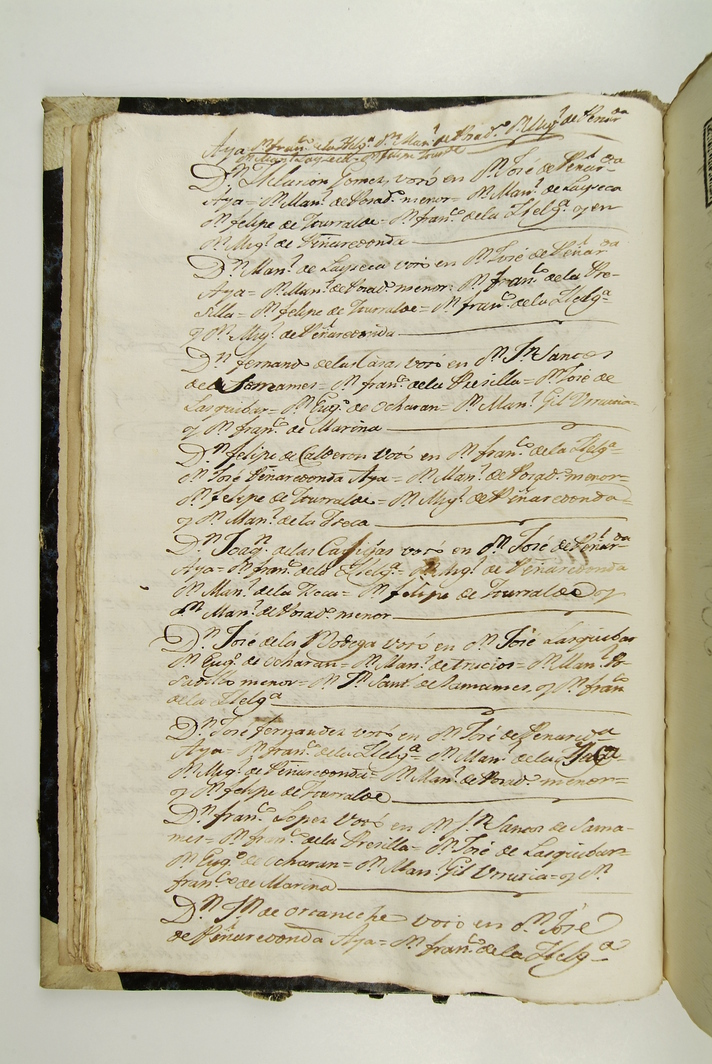 Aya Dn. franco. de la Helga. Dn. Manl. de Pradº. Dn. Migl. de Peñarda
Dn. Hilarion Gomez votó en Dn. José de Peñarda
Aya= Dn. Manl. de Pradº. menor= Dn. Manl. de Layseca
Dn. felipe de Iturralde= Dn. franco. de la Helga. y en
Dn. Migl. de Peñaredonda
Dn. Manl. de Layseca votó en Dn. José de Peñarda
Aya= Dn. Manl. de Pradº. menor= Dn. franco. de la Pre-
silla= Dn. felipe de Iturralde= Dn. franco. de la Helga=
y Dn. Migl. de Peñaredonda
Dn. fernando de las Casas votó en Dn. Jn. Santos
de Samames= Dn. franco. de la Presilla= Dn. José de
Larguibar= Dn. Eugo. de Ocharan= Dn. Manl. Gil Urrutia=
y Dn. franco. de Marina
Dn. felipe de Calderon votó en Dn. franco. de la Helga=
Dn. José Peñaredonda Aya= Dn. Manl. de Pradº. menor=
Dn. felipe de Iturralde= Dn. Migl. de Peñaredonda=
y Dn. Manl. de la Troca
Dn. Joaqn. de las Casillas votó en Dn. José de Peñarda
Aya= Dn. franco. de la Helga= Dn. Migl. de Peñaredonda
Dn. Manl. de la Troca= Dn. felipe de Iturralde y
Dn. Manl. de Pradº. menor
Dn. José de la Bodega votó en Dn. José Larguibar
Dn. Eugo. de Ocharan= Dn. Manl. de trucios= Dn. Manl. Pr-
adillo menor= Dn. Jn. Sants. de Samames, y Dn. franco.
de la Helga
Dn. José fernandez votó en Dn. José de Peñareda
Aya= Dn. franco. de la Helga= Dn. Manl. de la
Dn. Migl. de Peñaredonda= Dn. Manl. de Pradº. menor=
y Dn. felipe de Iturralde
Dn. franco. Lopez votó en Dn. Jn. Santos de Sama-
mes= Dn. franco. de la Presilla= Dn. José de Larguibar=
Dn. Eugo. de Ocharan= Dn. Manl. Gil Urrutia= y Dn.
franco. de Marina
Dn. Jn. de orcaneche votó en Dn. José
de Peñaredonda Aya= Dn. franco. de la Helga=